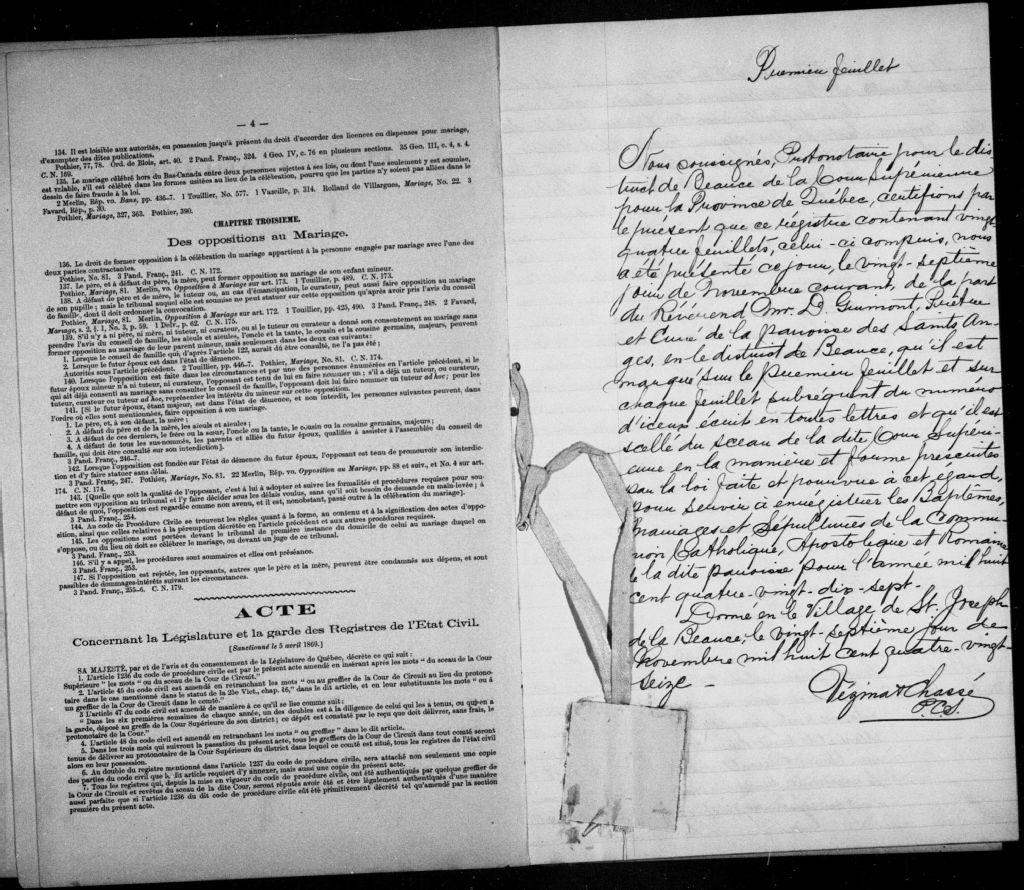 — 4 —
134. Il est loisible aux autorités, en possession jusqu'à présent du droit d'accorder des licences ou dispenses pour mariage,
d'exempter des dites publications.
Pothier, 77, 78. Ord. de Blois, art. 40. 2 Pand. Franç., 324. 4 Geo. IV, c. 76 en plusieurs sections. 35 Geo. III, c. 4, s. 4.
C. N. 169.
135. Le mariage célébré hors du Bas-Canada entre deux personnes sujettes à ses lois, ou dont l'une seulement y est soumise,
est valable, s'il est célébré dans les formes usitées au lieu de la célébration, pourvu que les parties n'y soient pas allées dans le
dessin de faire fraude à la loi.
2 Merlin, Rép. vo. Bans, pp. 436-7. 1 Touillier, No. 577. 1 Vazeille, p. 314. Rolland de Villargues, Mariage, No. 22. 3
Favard, Rép., p. 30.
Pothier, Mariage, 327, 363. Pothier, 390.
CHAPITRE TROISIEME.
Des oppositions au Mariage.
136. Le droit de former opposition à la célébration du mariage appartient à la personne engagée par mariage avec l'une des
deux parties contractantes.
Pothier, No. 81. 3 Pand. Franç., 241. C. N. 172.
137. Le père, et à défaut du père, la mère, peut former opposition au mariage de son enfant mineur.
Pothier, Mariage, 81. Merlin, vo. Opposition à Mariage sur art. 173. 1 Touillier, p. 489. C. N. 173.
138. A défaut de père et de mère, le tuteur ou, au cas d'émancipation, le curateur, peut aussi faire opposition au mariage
de son pupille ; mais le tribunal auquel elle est soumise ne peut statuer sur cette opposition qu'après avoir pris l'avis du conseil
de famille, dont il doit ordonner la convocation.
Pothier, Mariage, 81. Merlin, Opposition à Mariage sur art. 172. 1 Touillier, pp. 425, 490. 3 Pand. Franç., 248. 2 Favard,
Mariage, s. 2, § 1, No. 3, p. 59. 1 Delv., p. 62. C. N. 175.
139. S'il n'y a ni père, ni mère, ni tuteur, ni curateur, ou si le tuteur ou curateur a donné son consentement au mariage sans
prendre l'avis du conseil de famille, les aïeuls et aïeules, l'oncle et la tante, le cousin et la cousine germains, majeurs, peuvent
former opposition au mariage de leur parent mineur, mais seulement dans les deux cas suivants :
1. Lorsque le conseil de famille qui, d'après l'article 122, aurait dû être consulté, ne l'a pas été ;
2. Lorsque le futur époux est dans l'état de démence.
Autorités sous l'article précédent. 2 Touillier, pp. 446-7. Pothier, Mariage, No. 81. C. N. 174.
140. Lorsque l'opposition est faite dans les circonstances et par une des personnes énumérées en l'article précédent, si le
futur époux mineur n'a ni tuteur, ni curateur, l'opposant est tenu de lui en faire nommer un ; s'il a déjà un tuteur, ou curateur,
qui ait déjà consenti au mariage sans consulter le conseil de famille, l'opposant doit lui faire nommer un tuteur ad hoc ; pour les
tuteur, curateur ou tuteur ad hoc, représenter les intérêts du mineur sur cette opposition.
141. [Si le futur époux, étant majeur, est dans l'état de démence, et non interdit, les personnes suivantes peuvent, dans
l'ordre où elles sont mentionnées, faire opposition à son mariage.
1. Le père, et, à son défaut, la mère ;
2. A défaut du père et de la mère, les aïeuls et aïeules ;
3. A défaut de ces derniers, le frère ou la sœur, l'oncle ou la tante, le cousin ou la cousine germains, majeurs ;
4. A défaut de tous les sus-nommés, les parents et alliés du futur époux, qualifiés à assister à l'assemblée du conseil de
famille, qui doit être consulté sur son interdiction].
3 Pand. Franç., 246-7.
142. Lorsque l'opposition est fondée sur l'état de démence du futur époux, l'opposant est tenu de promouvoir son interdic-
tion et d'y faire statuer sans délai.
3 Pand. Franç., 247. Pothier, Mariage, No. 81. 22 Merlin, Rép. vo. Opposition au Mariage, pp. 88 et suiv., et No. 4 sur art.
174. C. N. 174.
143. [Quelle que soit la qualité de l'opposant, c'est à lui à adopter et suivre les formalités et procédures requises pour sou-
mettre son opposition au tribunal et l'y faire décider sous les délais voulus, sans qu'il soit besoin de demande en main-levée ; à
défaut de quoi, l'opposition est regardée comme non avenu, et il est, nonobstant, passé outre à la célébration du mariage].
3 Pand. Franç., 254.
144. Au code de Procédure Civile se trouvent les règles quant à la forme, au contenu et à la signification des actes d'oppo-
sition, ainsi que celles relatives à la péremption décrétée en l'article précédent et aux autres procédures requises.
145. Les oppositions sont portées devant le tribunal de première instance du domicile de celui au mariage duquel on
s'oppose, ou du lieu où doit se célébrer le mariage, ou devant un juge de ce tribunal.
3 Pand. Franç., 253.
146. S'il y a appel, les procédures sont sommaires et elles ont préséance.
3 Pand. Franç., 253.
147. Si l'opposition est rejetée, les opposants, autres que le père et la mère, peuvent être condamnés aux dépens, et sont
passibles de dommages-intérêts suivant les circonstances.
3 Pand. Franç., 255-6. C. N. 179.
ACTE
Concernant la Législature et la garde des Registres de l'Etat Civil.
[Sanctionné le 5 avril 1869.]
SA MAJESTÉ, par et de l'avis et du consentement de la Législature de Québec, décrète ce qui suit :
1. L'article 1236 du code de procédure civile est par le présent acte amendé en insérant après les mots " du sceau de la Cour
Supérieure " les mots " ou du sceau de la Cour de Circuit."
2. L'article 45 du code civil est amendé en retranchant les mots " ou au greffier de la Cour de Circuit au lieu du protono-
taire dans le cas mentionné dans le statut de la 25e Vict., chap. 46," dans le dit article, et en leur substituants les mots " ou à
un greffier de la Cour de Circuit dans le comté."
3 L'article 47 du code civil est amendé de manière à ce qu'il se lise comme suit :
" Dans les six premières semaines de chaque année, un des doubles est à la diligence de celui qui les a tenus, ou qui en a
la garde, déposé au greffe de la Cour Supérieure de son district ; ce dépôt est constaté par le reçu que doit délivrer, sans frais, le
protonotaire de la Cour."
4. L'article 48 du code civil est amendé en retranchant les mots " ou greffier " dans le dit article.
5. Dans les trois mois qui suivront la passation du présent acte, tous les greffiers de la Cour de Circuit dans tout comté seront
tenus de délivrer au protonotaire de la Cour Supérieure du district dans lequel ce comté est situé, tous les registres de l'état civil
alors en leur possession.
6. Au double du registre mentionné dans l'article 1237 du code de procédure civile, sera attaché non seulement une copie
des parties du code civil que le dit article requiert d'y annexer, mais aussi une copie du présent acte.
7. Tous les registres qui, depuis la mise en vigueur du code de procédure civile, ont été authentiqués par quelque greffier de
la Cour de Circuit et revêtus du sceau de la dite Cour, seront réputés avoir été et être légalement authentiqués d'une manière
aussi parfaite que si l'article 1236 du dit code de procédure civile eût été primitivement décrété tel qu'amendé par la section
première du présent acte.
Premier feuillet
Nous soussignés, Protonotaire pour le dis
trict de Beauce de la Cour Supérieure
pour la Province de Québec, certifions par
le présent que ce régistre contenant vingt
quatre feuillets, celui-ci compris, nous
a été présenté ce jour, le vingt-septième
jour de Novembre courant, de la part
du Révérend Mr. D. Guimont, Prêtre
et Curé de la paroisse des Saints An-
ges, en le district de Beauce, qu'il est
marqué sur le premier feuillet et sur
chaque feuillet subséquent du numéro
d'iceux écrit en toutes lettres et qu'il est
scellé du sceau de la dite Cour Supéri-
eure en la manière et forme prescrites
par la loi faite et pourvue à cet égard,
pour servir à enrégistrer les Baptêmes,
Mariages et Sépultures de la Commu
nion Catholique, Apostolique et Romaine
de la dite paroisse pour l'année mil huit
cent quatre-vingt-dix-sept.
Donné en le Village de St. Joseph
de la Beauce, le vingt-septième jour de
Novembre mil huit cent quatre-vingt-
seize -
Vézina & Chassé
P.C.S.